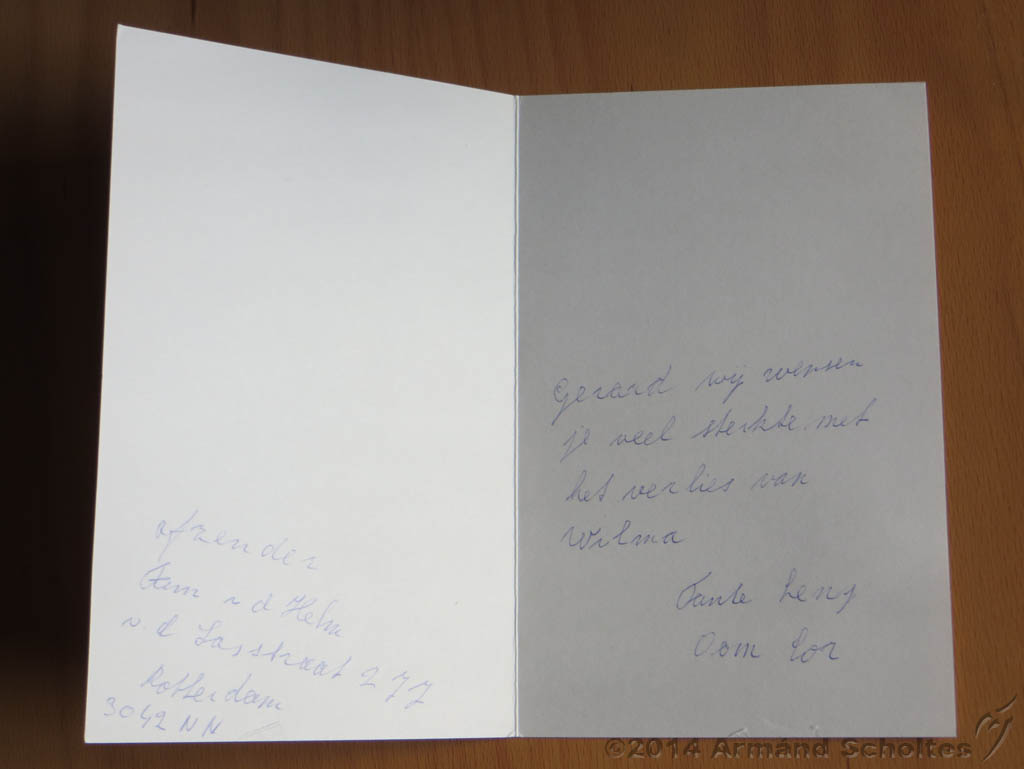 afzender
Fam v d Helm
v. d straat 277
Rotterdam
3042 NN
Gerard wij wensen
je veel sterkte met
het verlies van
Wilma
Tante Leny
Oom Cor
©2014 Armánd Scholtes